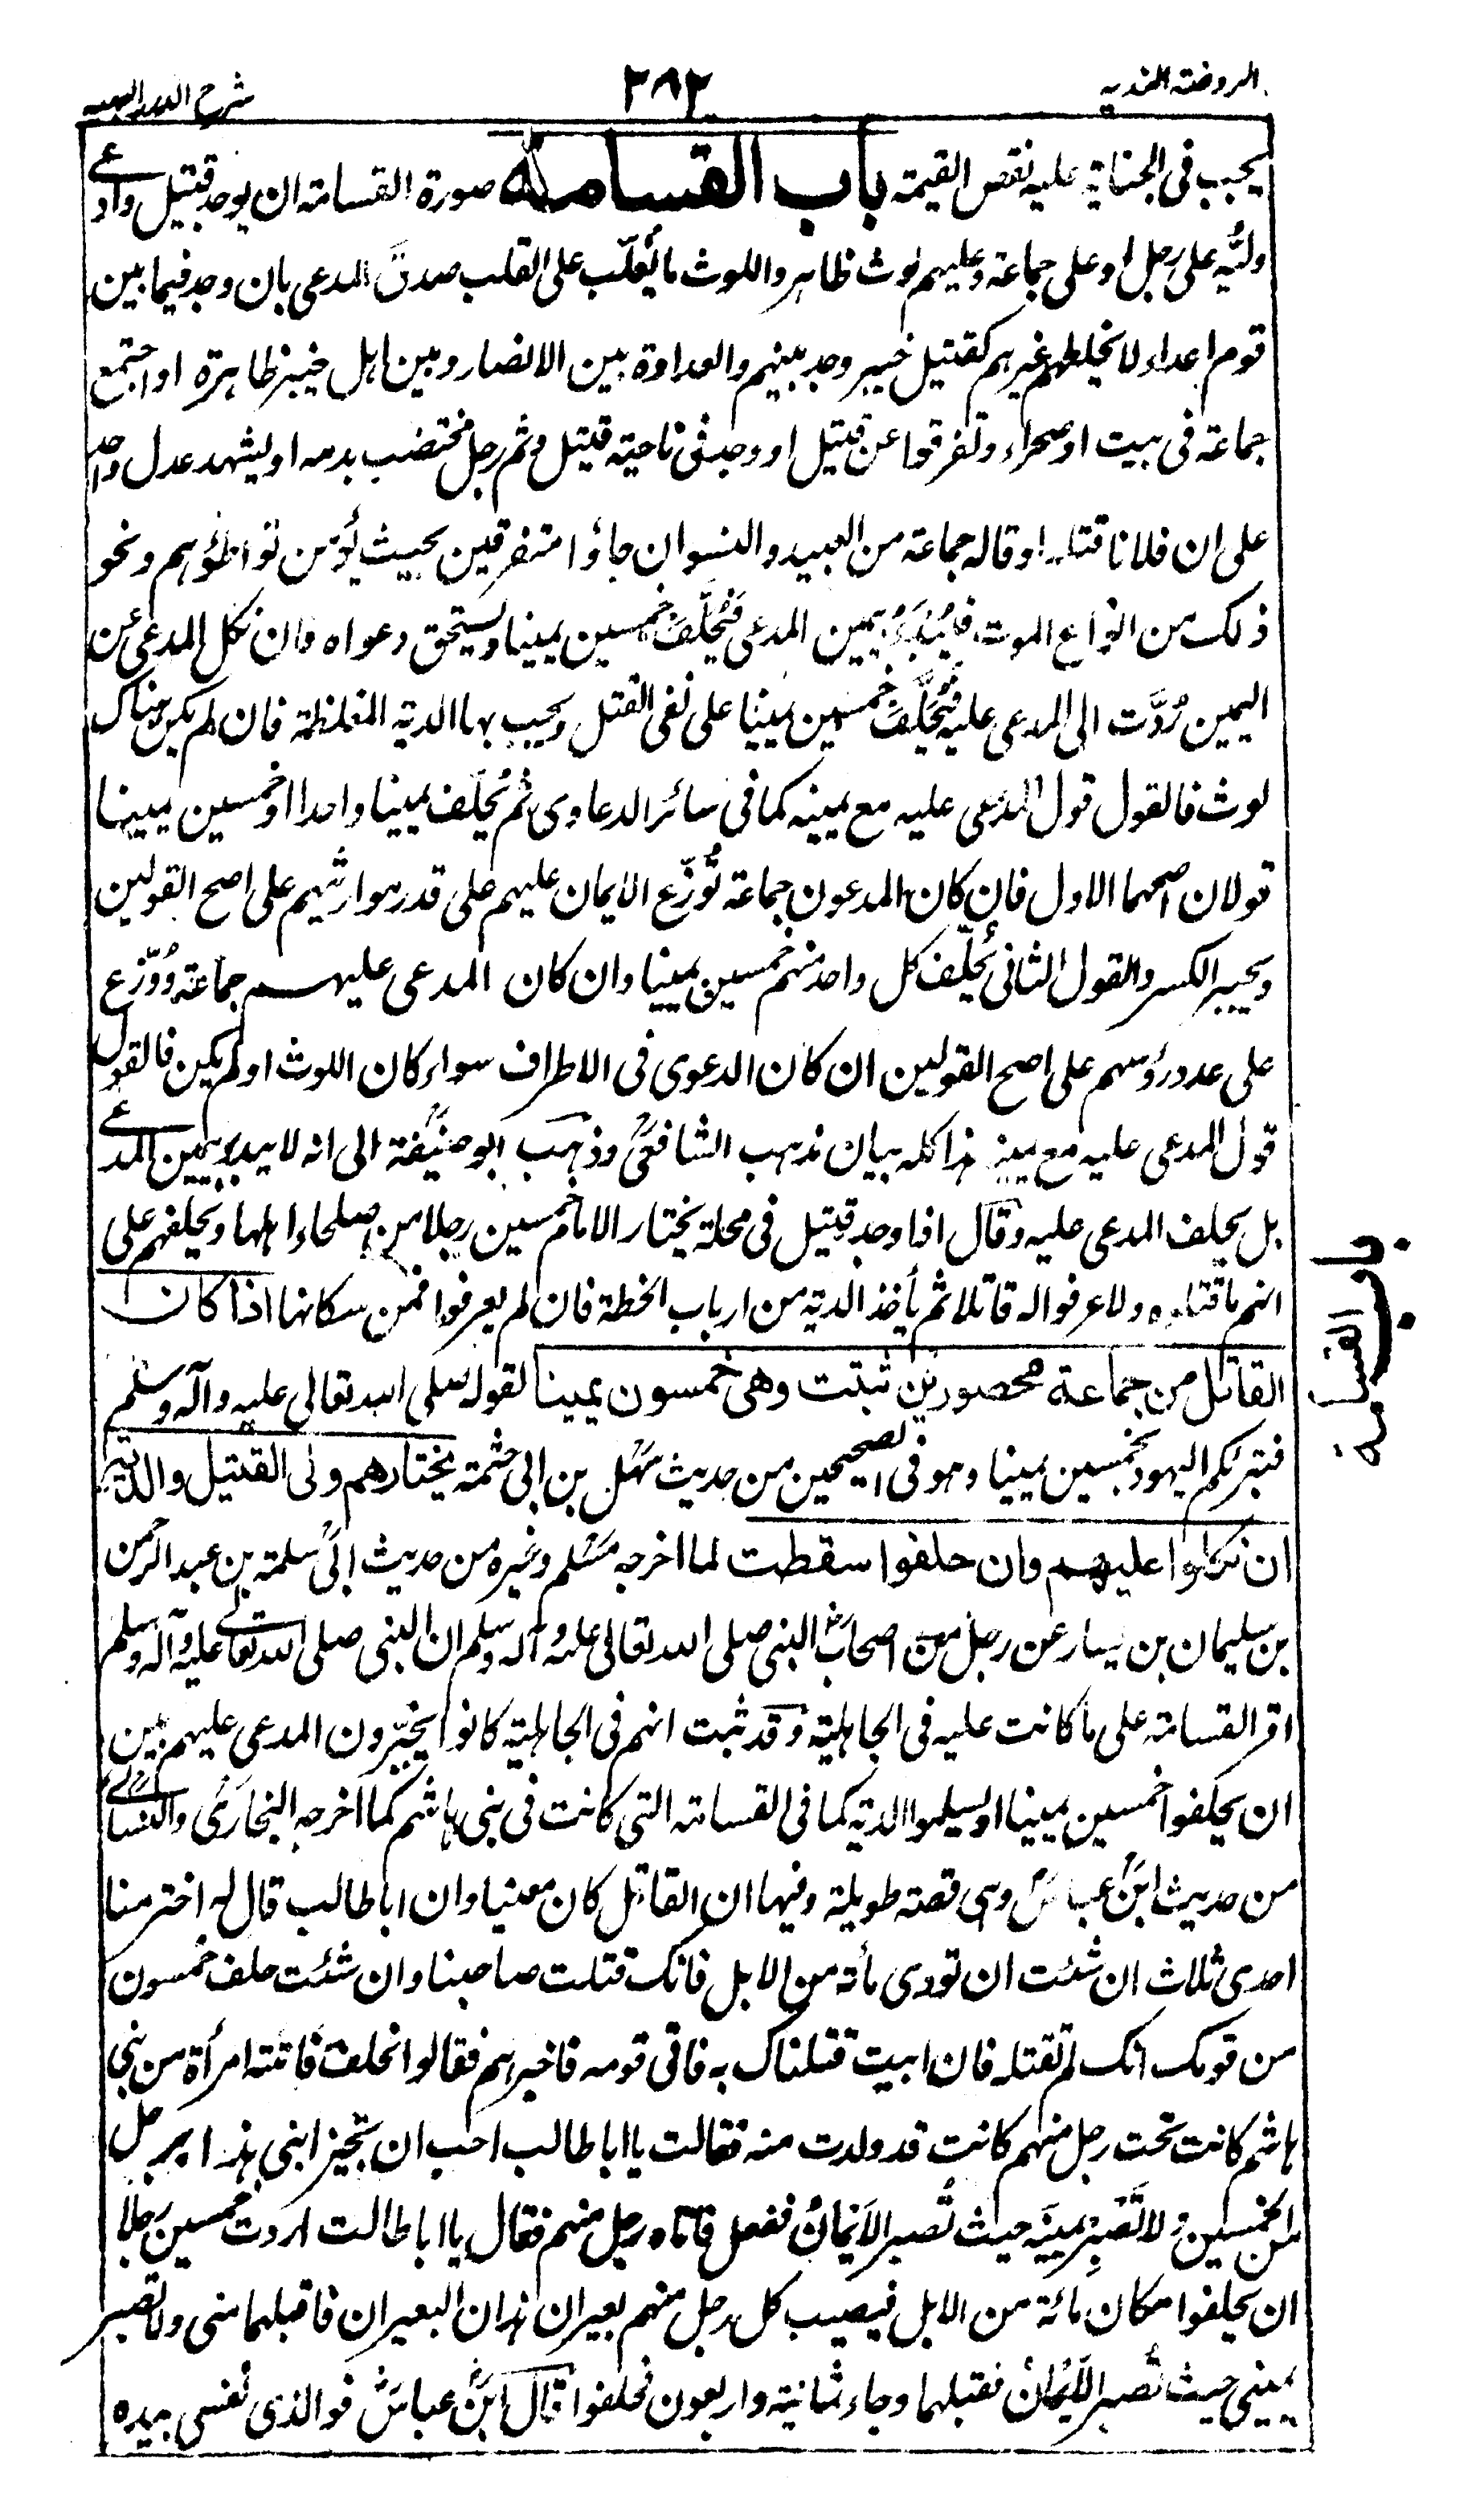 الروضة الندية
٣٨٢
شرح الدرر البهية
يجب فى الجناية عليه نقص القيمة باب القسامة صورة القسامة ان يوجد قتيل وادعى
وليُّه على رجل او على جماعة وعليهم لوث ظاهر واللوث ما يُغلّب على القلب صدقَ المدعى بان وجد فيما بين
قوم اعداء لا يخلطهم غيرهم كقتيل خيبر وجد بينهم والعداوة بين الانصار وبين اهل خيبر ظاهرة او اجتمع
جماعة فى بيت او صحراء وتفرقوا عن قتيل او وجد فى ناحية قتيل وثم رجل مختضب بدمه او يشهد عدل واحد
على ان فلانا قتله او قاله جماعة من العبيد والنسوان جاؤا متفرقين بحيث يُؤمن تواطؤهم ونحو
ذلك من انواع اللوث فيُبْدَءُ بيمين المدعى فيُحَلَّفُ خمسين يمينا ويستحق دعواه وان نكل المدعى عن
اليمين رُدَّت الى المدعى عليه فيُحَلَّفُ خمسين يمينا على نفى القتل ويجب بها الدية المغلظة فان لم يكن هناك
لوث فالقول قول المدعى عليه مع يمينه كما فى سائر الدعاوى ثم يُحلّف يمينا واحدا او خمسين يمينا
قولان اصحهما الاول فان كان المدعون جماعة تُوزّع الايمان عليهم على قدر مواريثهم على اصح القولين
ويجبر الكسر والقول الثانى يُحلّف كل واحد منهم خمسين يمينا وان كان المدعى عليهم جماعة وُوزّع
على عدد رؤسهم على اصح القولين ان كان الدعوى فى الاطراف سواء كان اللوث او لم يكن فالقول
قول المدعى عليه مع يمينه هذا كله بيان مذهب الشافعى وذهب ابو حنيفة الى انه لا يبدء بيمين المدعى
بل يحلف المدعى عليه وقال اذا وجد قتيل فى محلة يختار الامام خمسين رجلا من صلحاء اهلها ويحلفهم على
انهم ما قتلوه ولا عرفوا له قاتلا ثم يأخذ الدية من ارباب الخطة فان لم يعرفوا فمن سكانها اذا كان
القاتل من جماعة محصورين ثبتت وهى خمسون يمينا لقوله صلى الله تعالى عليه وآله وسلم
فتبرئكم اليهود بخمسين يمينا وهو فى الصحيحين من حديث سهل بن ابى حثمة يختارهم ولى القتيل والدية
ان نكلوا عليهم وان حلفوا سقطت لما اخرجه مسلم وغيره من حديث ابى سلمة بن عبد الرحمن
بن سليمان بن يسار عن رجل من اصحاب النبى صلى الله تعالى عليه وآله وسلم ان النبى صلى الله تعالى عليه وآله وسلم
اقر القسامة على ما كانت عليه فى الجاهلية وقد ثبت انهم فى الجاهلية كانوا يخيّرون المدعى عليهم بين
ان يحلفوا خمسين يمينا او يسلموا الدية كما فى القسامة التى كانت فى بنى هاشم كما اخرجه البخارى والنسائى
من حديث ابن عباس وهى قصة طويلة وفيها ان القاتل كان معينا وان ابا طالب قال له اختر منا
احدى ثلاث ان شئت ان تودى مأة من الابل فانك قتلت صاحبنا وان شئت حلف خمسون
من قومك انك لم تقتله فان ابيت قتلناك به فاتى قومه فاخبرهم فقالوا نحلف فاتته امرأة من بنى
هاشم كانت تحت رجل منهم كانت قد ولدت منه فقالت يا ابا طالب احب ان تجيز ابنى هذا برجل
من الخمسين ولا تَصْبِر يمينه حيث تُصبر الاَيْمَانُ ففعل فاتاه رجل منهم فقال يا ابا طالت اردت خمسين رجلا
ان يحلفوا مكان مائة من الابل فيصيب كل رجل منهم بعيران هذان البعيران فاقبلهما منى ولا تصبر
يمينى حيث تُصبر الاَيْمَانُ فقبلهما وجاء ثمانية واربعون فحلفوا قال ابن عباس فو الذى نفسى بيده
باب القسامة